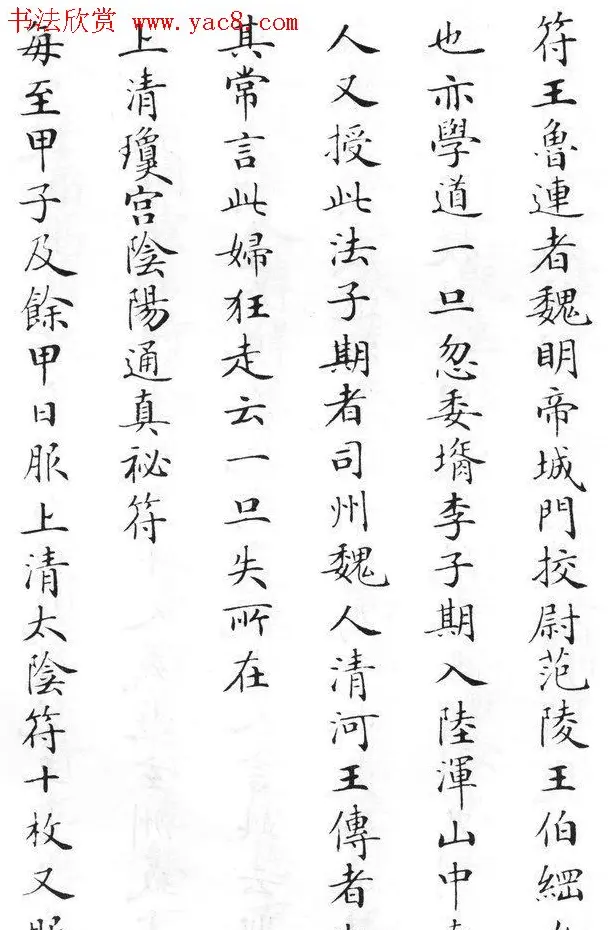 书法欣赏 www.yac8.com
符王魯連者魏明帝城門挍尉范陵王伯綱
也亦學道一旦忽委壻李子期入陸渾山中
人又授此法子期者司州魏人清河王傳者
其常言此婦狂走云一旦失所在
上清瓊宮陰陽通真祕符
每至甲子及餘甲日服上清太陰符十枚又服